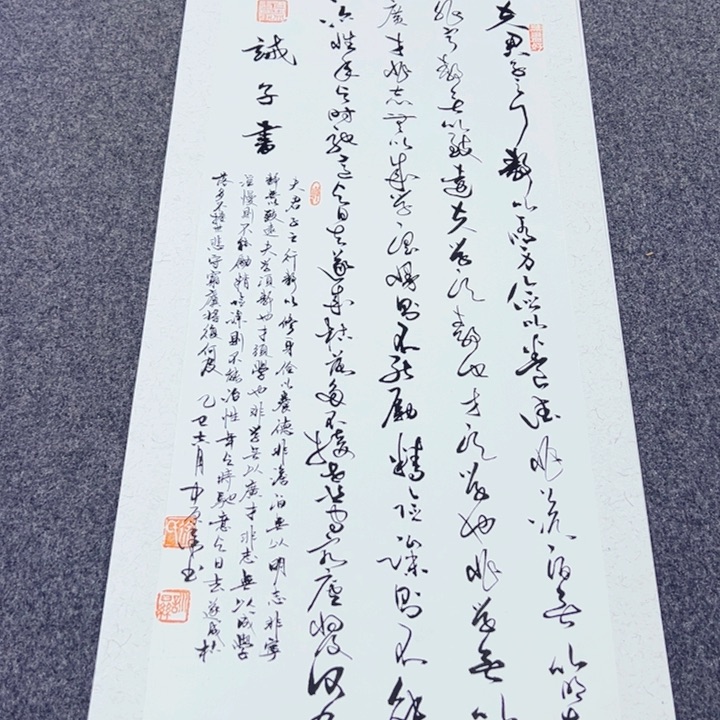 夫君子之行靜以修身儉以養德非澹泊無以明
非寧靜無以致遠夫學須靜也才須學也非學無以
廣才非志無以成學淫慢則不能勵精險躁則不能
冶性年与時馳意与日去遂成枯落多不接世悲守窮廬將復何及
誡子書
夫君子之行靜以修身儉以養德非澹泊無以明志非寧
靜無以致遠夫學須靜也才須學也非學無以廣才非志無以成學
淫慢則不能勵精險躁則不能冶性年与時馳意与日去遂成枯
落多不接世悲守窮廬將復何及 乙 月 书